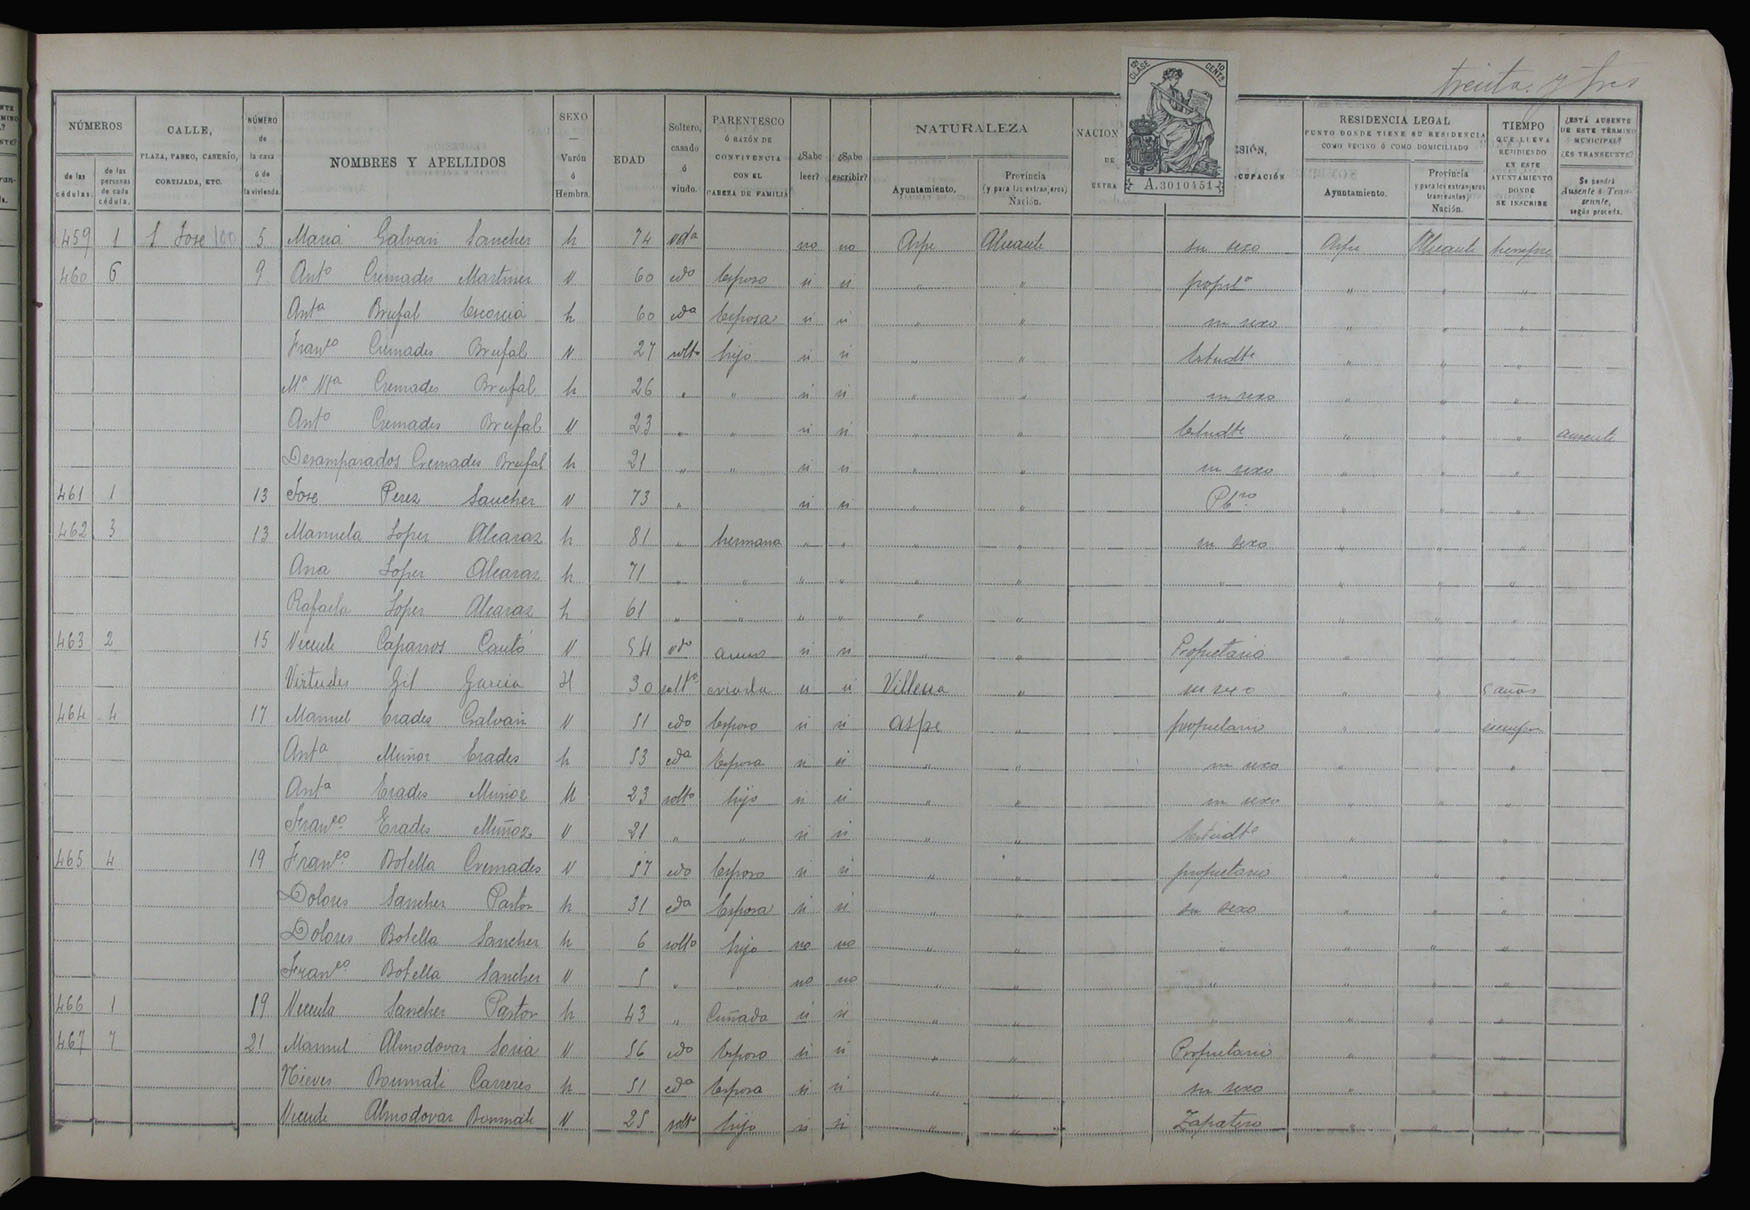 treinta y tres
12ª CLASE 10 CENTS
A.3010451
NÚMEROS
de las cédulas.
de las personas de cada cédula.
CALLE,
PLAZA, PASEO, CASERÍO,
CORTIJADA, ETC.
NÚMERO
de
la casa
ó de
la vivienda.
NOMBRES Y APELLIDOS
SEXO
Varón
ó
Hembra
EDAD
Soltero,
casado
ó
viudo.
PARENTESCO
Ó RAZÓN DE
CONVIVENCIA
CON EL
CABEZA DE FAMILIA
¿Sabe
leer?
¿Sabe
escribir?
NATURALEZA
Ayuntamiento.
Provincia
(y para los extranjeros)
Nación.
NACION
DE
EXTRA
SIÓN,
CUPACIÓN
RESIDENCIA LEGAL
PUNTO DONDE TIENE SU RESIDENCIA
COMO VECINO Ó COMO DOMICILIADO
Ayuntamiento.
Provincia
y para los extranjeros
transeuntes)
Nación.
TIEMPO
QUE LLEVA
RESIDIENDO
EN ESTE
AYUNTAMIENTO
DONDE
SE INSCRIBE
¿ESTÁ AUSENTE
DE ESTE TÉRMINO
MUNICIPAL?
¿ES TRANSEUNTE?
Se pondrá
Ausente ó Tran-
seunte,
según proceda.
459 1 S Jose 100 5 Maria Galvan Sanchez h 74 vda no no Aspe Alicante su sexo Aspe Alicante siempre
460 6 9 Anto Cremades Martinez V 60 cdo Esposo si si " " propieto " " "
Anta Brufal h 60 cda Esposa si si " " su sexo " " "
Franco Cremades Brufal V 27 solto hijo si si " " Estudte " " "
Ma Cremades Brufal h 26 " " si si " " su sexo " " "
Anto Cremades Brufal V 23 " " si si " " Estudte " " " ausente
Desamparados Cremades Brufal h 21 " " si si " " su sexo " " "
461 1 13 Jose Perez Sanchez V 73 " si si " " Pbro " " "
462 3 13 Manuela Lopez Alcaraz h 81 " hermana " " " " su sexo " " "
Ana Lopez Alcaraz h 71 " " " " " " " " " "
Rafaela Lopez Alcaraz h 61 " " " " " " " " " "
463 2 15 Vicente Caparros Cantó V 54 vdo amo si si " " Propietario " " "
Virtudes Gil Garcia H 30 solta criada si si Villena " su sexo " " 5 años
464 4 17 Manuel Erades Galvañ V 51 cdo Esposo si si aspe " propietario " " siempre
Anta Muñoz Erades h 53 cda Esposa si si " " su sexo " " "
Anta Erades Muñoz H 23 solto hijo si si " " su sexo " " "
Franco Erades Muñoz V 21 " " si si " " Estudte " " "
465 4 19 Franco Botella Cremades V 57 cdo Esposo si si " " propietario " " "
Dolores Sanchez Pastor h 31 cda Esposa si si " " su sexo " " "
Dolores Botella Sanchez h 6 solto hijo no no " " " " " "
Franco Botella Sanchez V 5 " " no no " " " " " "
466 1 19 Vicenta Sanchez Pastor h 43 " Cuñada si si " " " " "
467 7 21 Manuel Almodovar Soria V 56 cdo Esposo si si " " Propietario " " "
Nieves Bonmati Carreres h 51 cda Esposa si si " " su sexo " " "
Vicente Almodovar Bonmati V 25 solto hijo si si " " Zapatero " " "